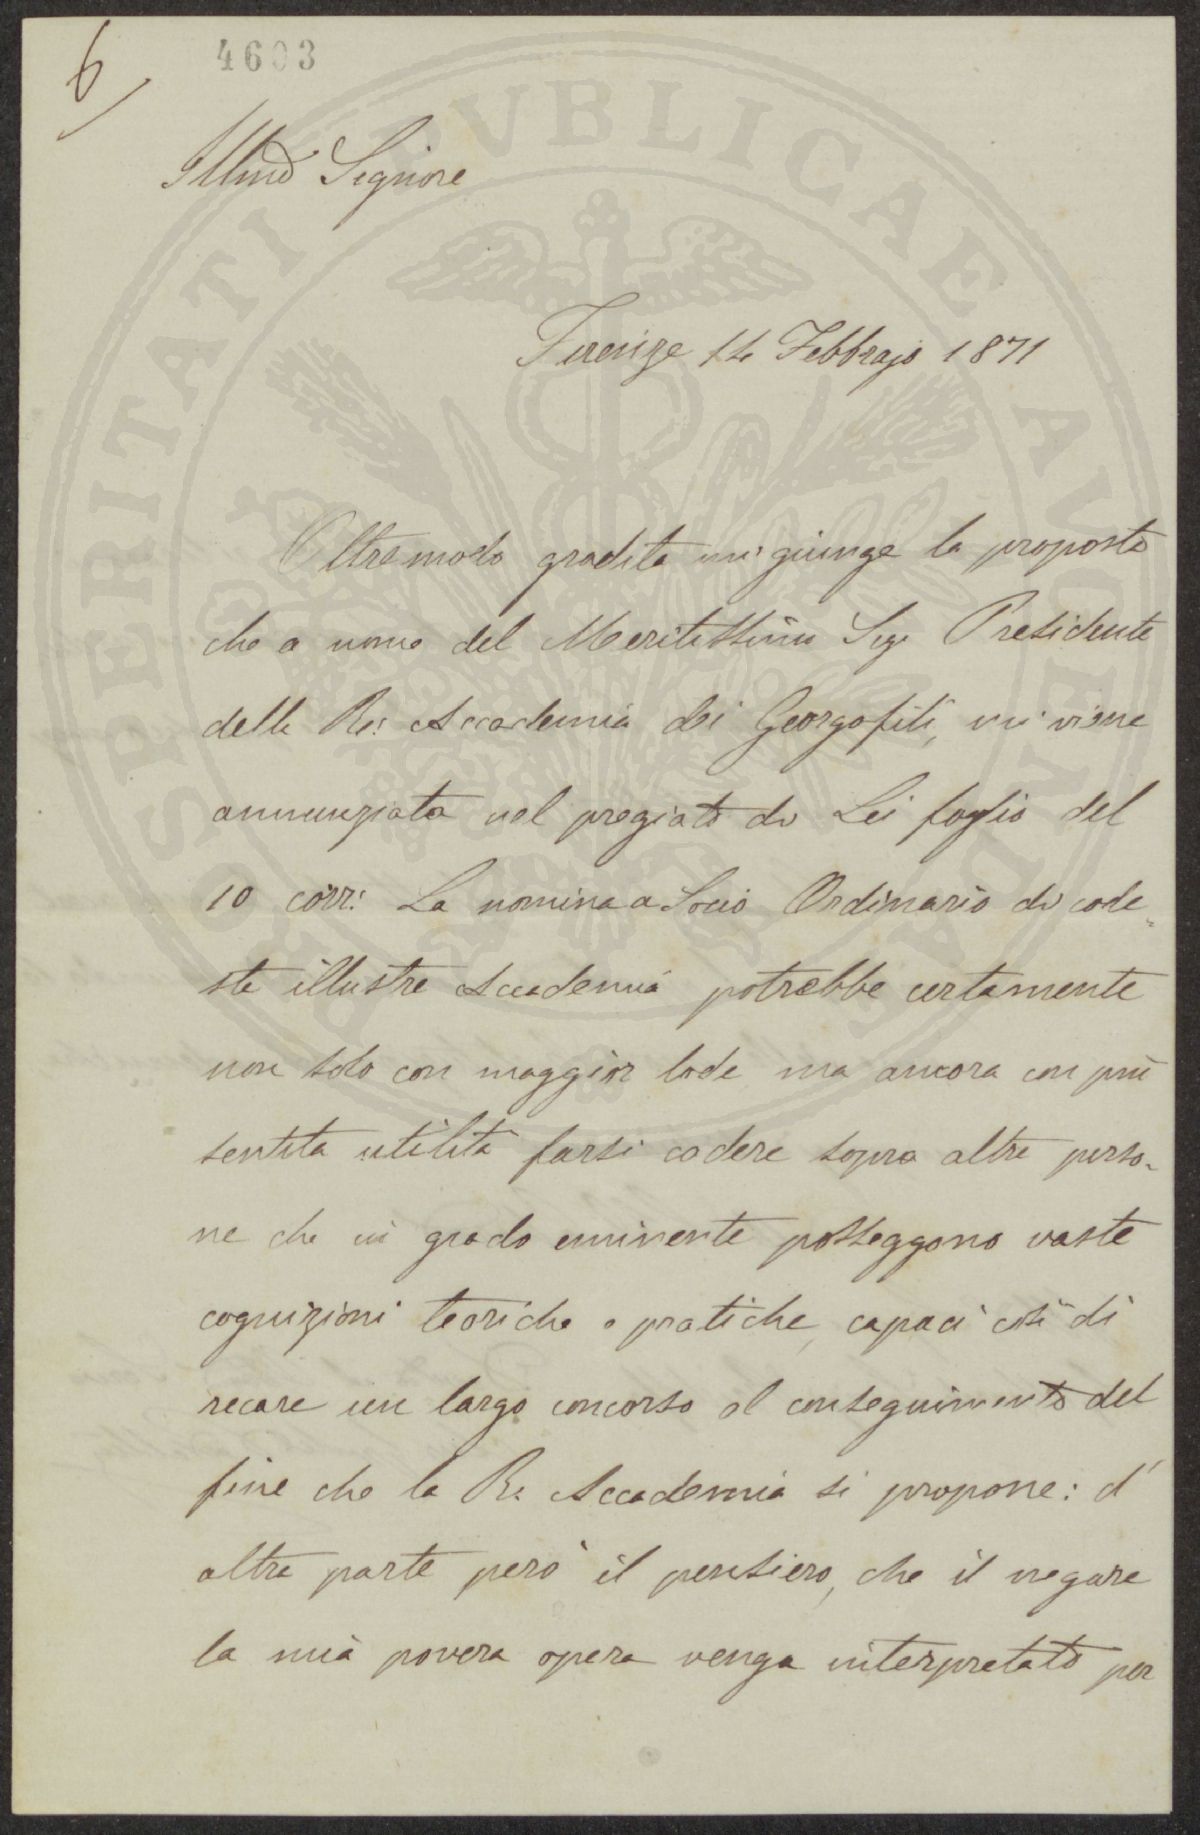 6
4603
PROSPERITATI PVBLICAE AVGENDAE
Illmo Signore
Firenze 14 Febbrajo 1871
Oltremodo gradita mi giunge la proposta
che a nome del Meritissimo Sigr Presidente
della R: Accademia dei Georgofili, mi viene
annunziata nel pregiato di Lei foglio del
10 corr: La nomina a Socio Ordinario di code-
sta illustre Accademia potrebbe certamente
non solo con maggior lode ma ancora con più
sentita utilità farsi cadere sopra altre perso-
ne che in grado eminente posseggono vaste
cognizioni teoriche e pratiche, capaci così di
recare un largo concorso al conseguimento del
fine che la R: Accademia si propone: d'
altra parte però il pensiero, che il negare
la mia povera opera venga interpretato per